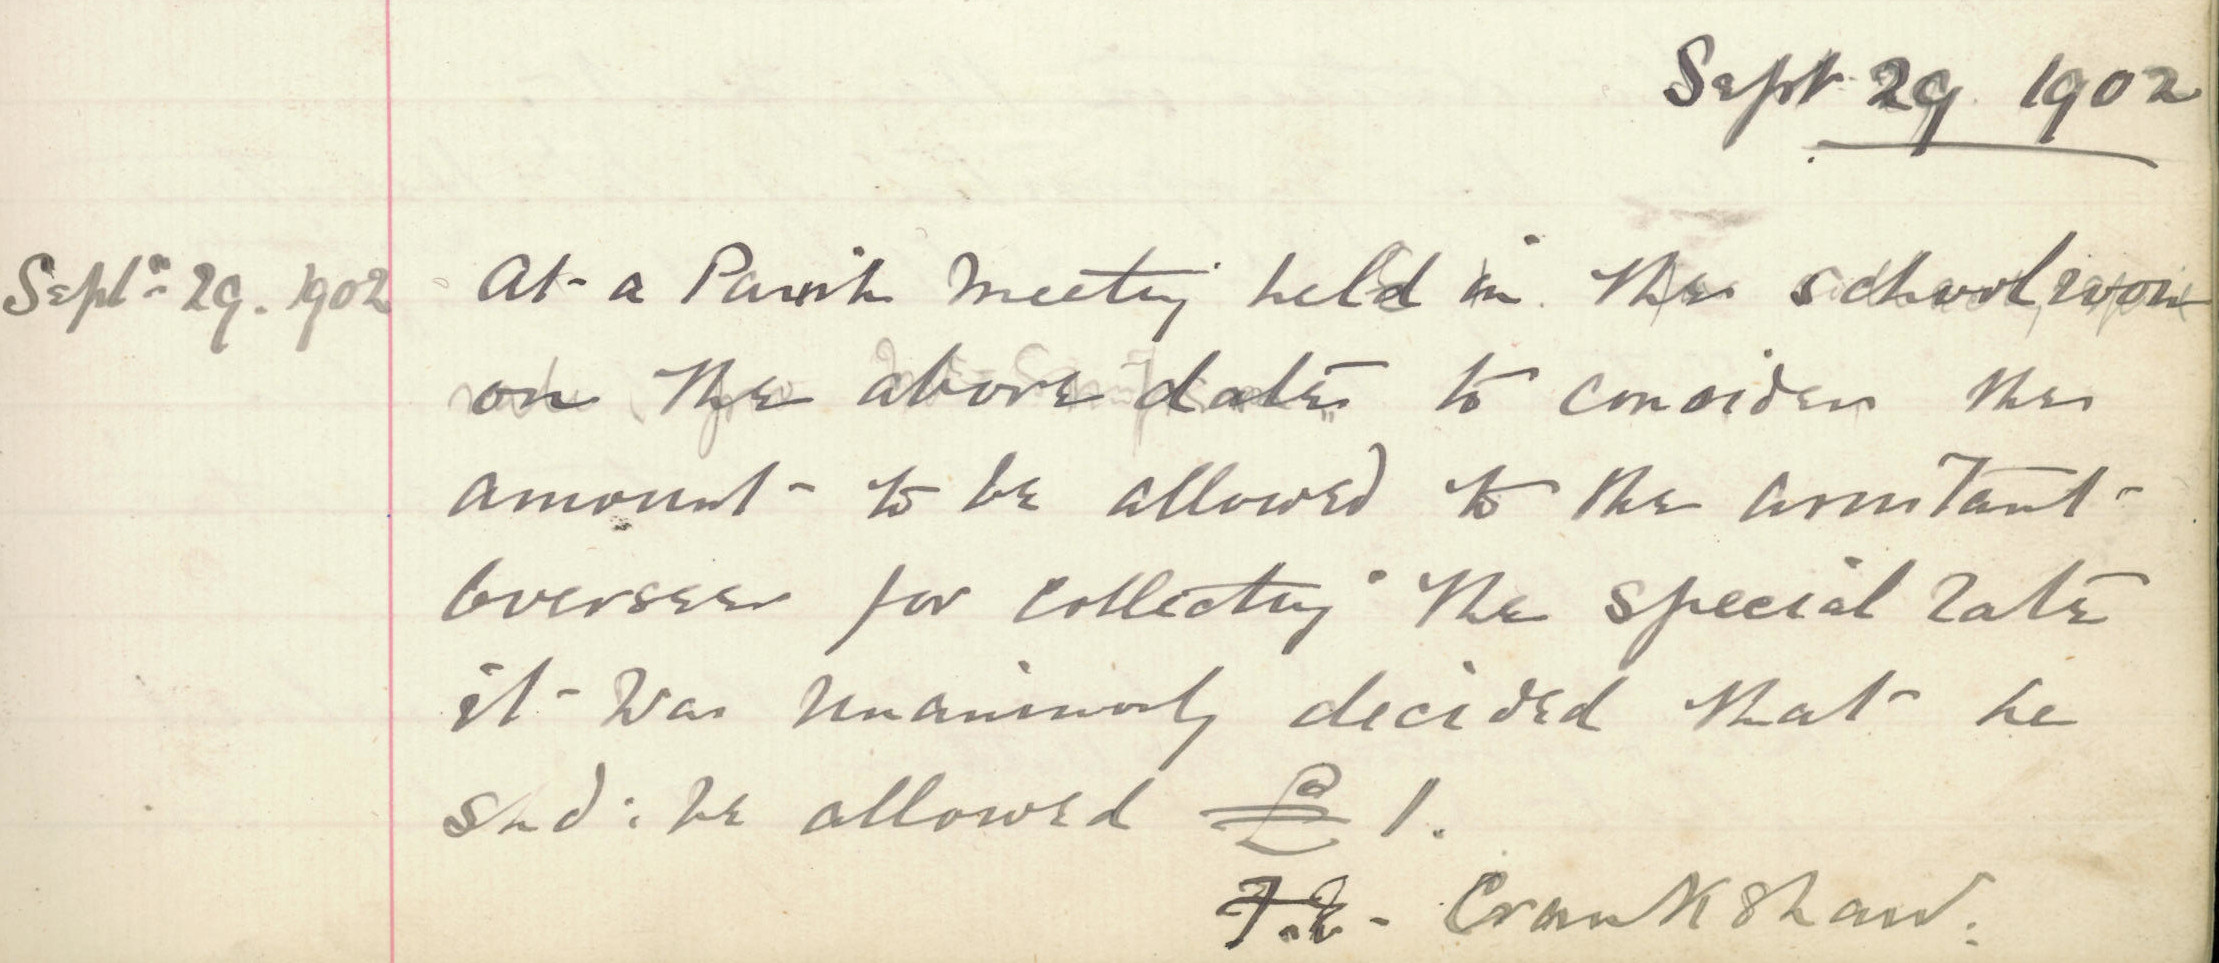 Sept. 29. 1902
Septr. 29. 1902
At a Parish Meeting held in the school room
on the above date to consider the
amount to be allowed to the assistant
overseer for collecting the special rate
it was unanimously decided that he
shd: be allowed £1.
F.E. Crankshaw.